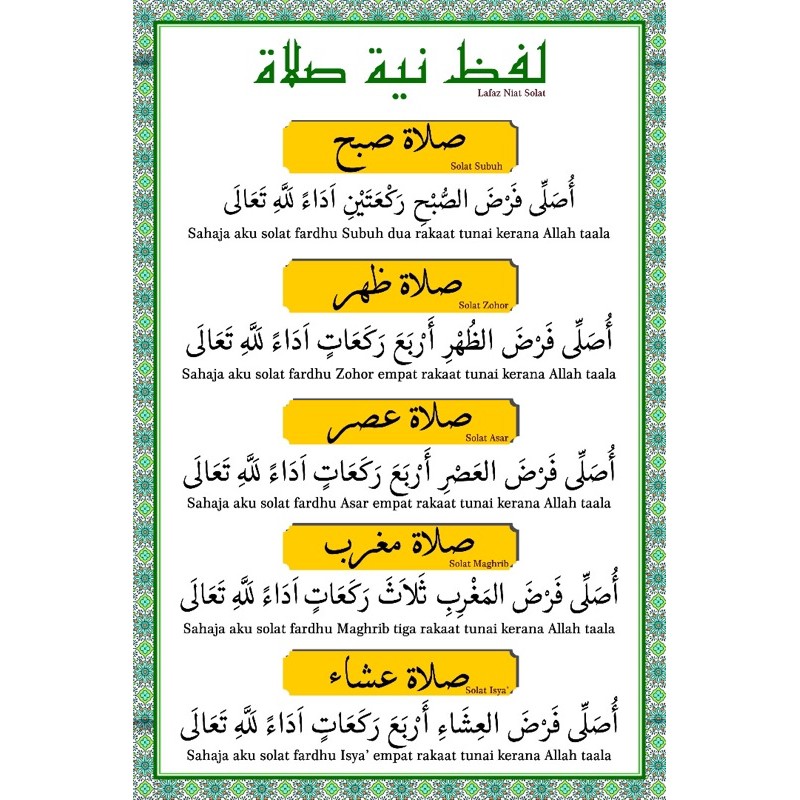 لفظ نية صلاة
Lafaz Niat Solat
صلاة صبح
Solat Subuh
أُصَلِّى فَرْضَ الصُّبْحِ رَكْعَتَيْنِ اَدَاءً لَلَّهِ تَعَالَى
Sahaja aku solat fardhu Subuh dua rakaat tunai kerana Allah taala
صلاة ظهر
Solat Zohor
أُصَلِّى فَرْضَ الظُّهْرِ أَرْبَعَ رَكَعَاتٍ اَدَاءً لَلَّهِ تَعَالَى
Sahaja aku solat fardhu Zohor empat rakaat tunai kerana Allah taala
صلاة عصر
Solat Asar
أُصَلِّى فَرْضَ العَصْرِ أَرْبَعَ رَكَعَاتٍ اَدَاءً لَلَّهِ تَعَالَى
Sahaja aku solat fardhu Asar empat rakaat tunai kerana Allah taala
صلاة مغرب
Solat Maghrib
أُصَلِّى فَرْضَ المَغْرِبِ ثَلَاثَ رَكَعَاتٍ اَدَاءً لَلَّهِ تَعَالَى
Sahaja aku solat fardhu Maghrib tiga rakaat tunai kerana Allah taala
صلاة عشاء
Solat Isya'
أُصَلِّى فَرْضَ العِشَاءِ أَرْبَعَ رَكَعَاتٍ اَدَاءً لَلَّهِ تَعَالَى
Sahaja aku solat fardhu Isya’ empat rakaat tunai kerana Allah taala